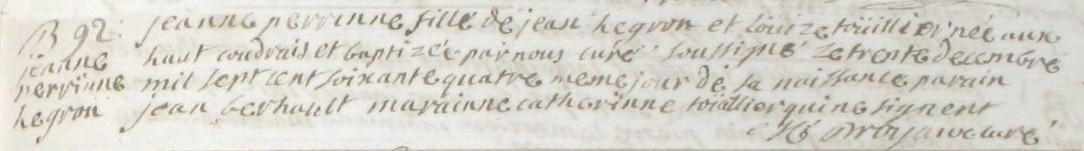 B 92:
jeanne
perrinne
hegron
jeanne perrinne fille de jean hegron et Loüize toüillier née aux
haut coudrais et baptizée par nous curé soussigné le trente decembre
mil sept cent soixante quatre meme jour de sa naissance parain
jean berhault marainne catherinne toüillier qui ne signent
curé